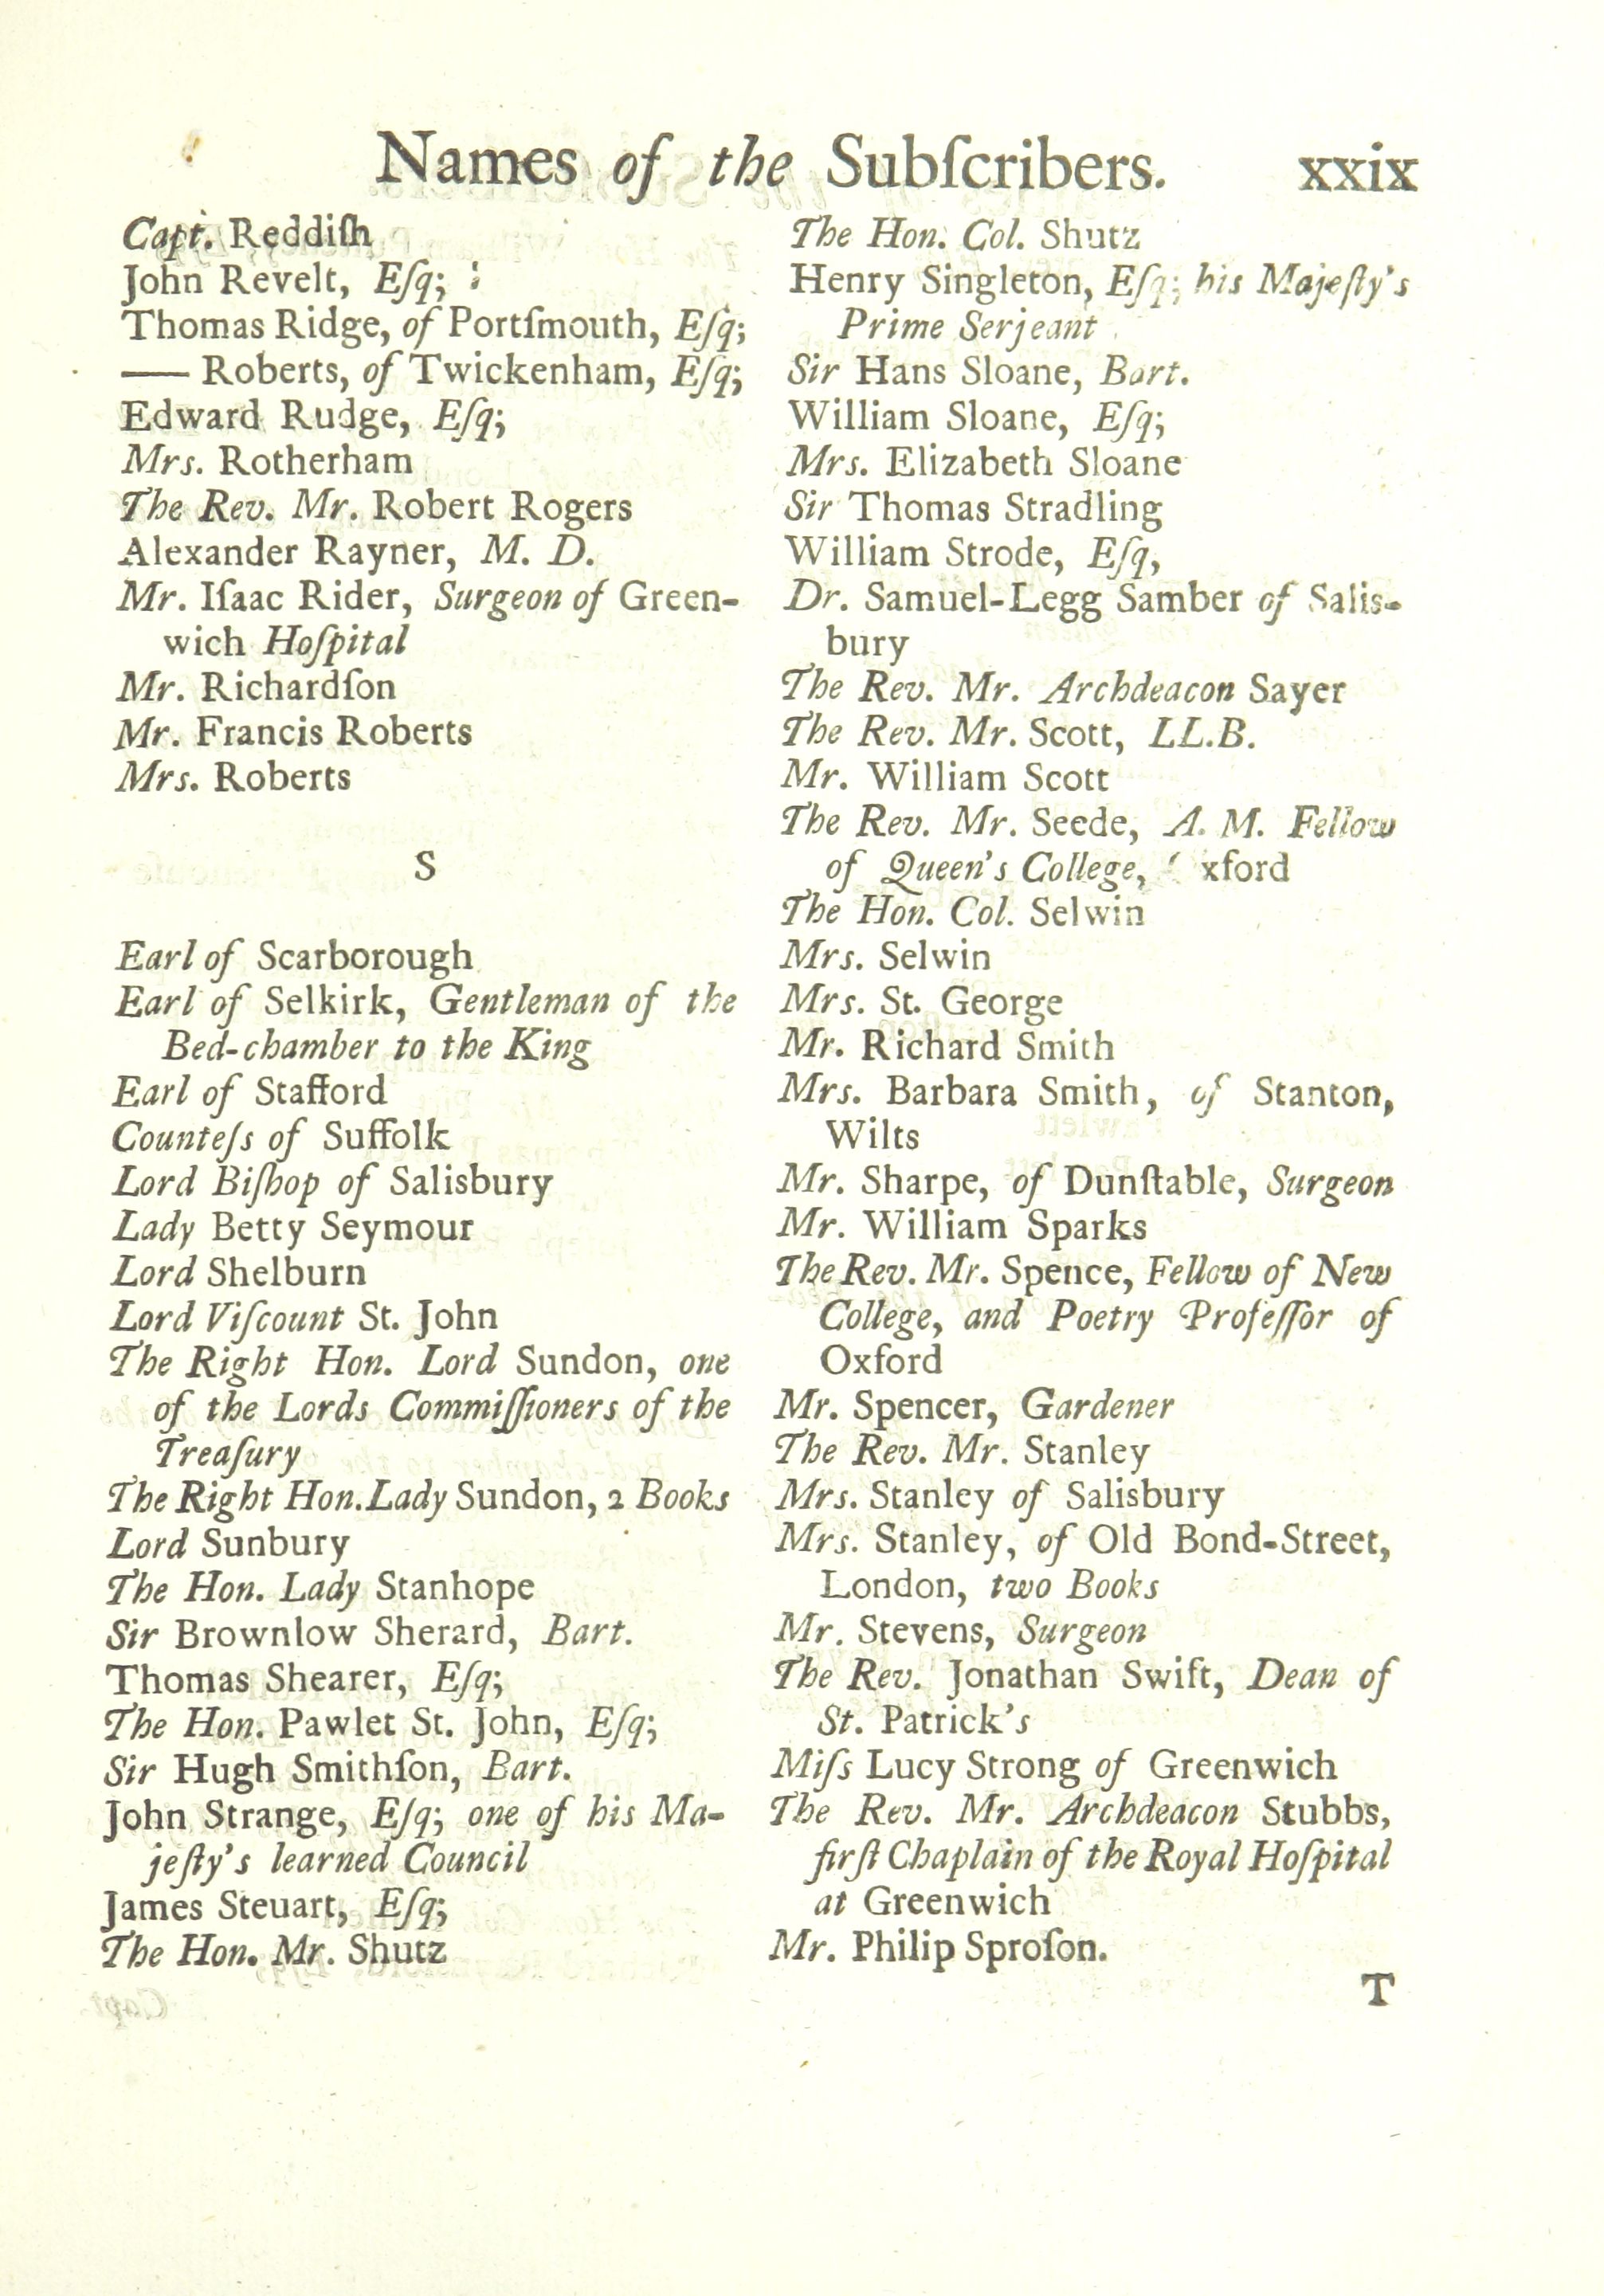 Names of the Subſcribers. xxix
Capt. Reddiſh
John Revelt, Eſq;
Thomas Ridge, of Portſmouth, Eſq;
—— Roberts, of Twickenham, Eſq;
Edward Rudge, Eſq;
Mrs. Rotherham
The Rev. Mr. Robert Rogers
Alexander Rayner, M. D.
Mr. Iſaac Rider, Surgeon of Green-
wich Hoſpital
Mr. Richardſon
Mr. Francis Roberts
Mrs. Roberts
S
Earl of Scarborough
Earl of Selkirk, Gentleman of the
Bed-chamber to the King
Earl of Stafford
Counteſs of Suffolk
Lord Biſhop of Salisbury
Lady Betty Seymour
Lord Shelburn
Lord Viſcount St. John
The Right Hon. Lord Sundon, one
of the Lords Commiſſioners of the
Treaſury
The Right Hon. Lady Sundon, 2 Books
Lord Sunbury
The Hon. Lady Stanhope
Sir Brownlow Sherard, Bart.
Thomas Shearer, Eſq;
The Hon. Pawlet St. John, Eſq;
Sir Hugh Smithſon, Bart.
John Strange, Eſq; one of his Ma-
jeſty's learned Council
James Steuart, Eſq;
The Hon. Mr. Shutz
The Hon. Col. Shutz
Henry Singleton, Eſq; his Majeſty's
Prime Serjeant
Sir Hans Sloane, Bart.
William Sloane, Eſq;
Mrs. Elizabeth Sloane
Sir Thomas Stradling
William Strode, Eſq,
Dr. Samuel-Legg Samber of Salis-
bury
The Rev. Mr. Archdeacon Sayer
The Rev. Mr. Scott, LL.B.
Mr. William Scott
The Rev. Mr. Seede, A. M. Fellow
of Queen's College, Oxford
The Hon. Col. Selwin
Mrs. Selwin
Mrs. St. George
Mr. Richard Smith
Mrs. Barbara Smith, of Stanton,
Wilts
Mr. Sharpe, of Dunſtable, Surgeon
Mr. William Sparks
The Rev. Mr. Spence, Fellow of New
College, and Poetry Profeſſor of
Oxford
Mr. Spencer, Gardener
The Rev. Mr. Stanley
Mrs. Stanley of Salisbury
Mrs. Stanley, of Old Bond-Street,
London, two Books
Mr. Stevens, Surgeon
The Rev. Jonathan Swift, Dean of
St. Patrick's
Miſs Lucy Strong of Greenwich
The Rev. Mr. Archdeacon Stubbs,
firſt Chaplain of the Royal Hoſpital
at Greenwich
Mr. Philip Sproſon.
T